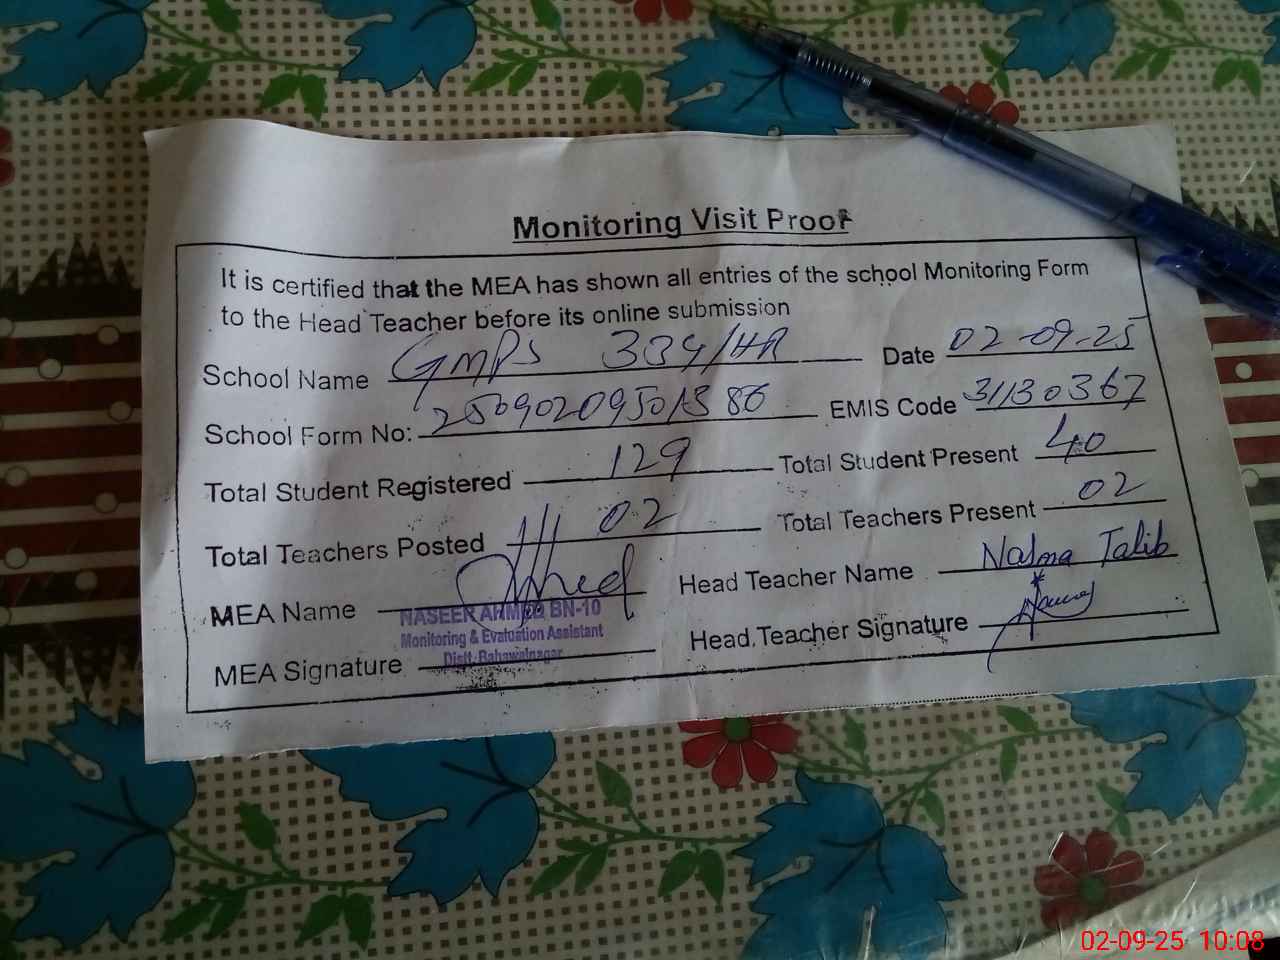 Monitoring Visit Proof
It is certified that the MEA has shown all entries of the school Monitoring Form
to the Head Teacher before its online submission
School Name GMPS 334/HR Date 02-09-25
School Form No: EMIS Code 31130367
Total Student Registered 129 Total Student Present 40
Total Teachers Posted 02 Total Teachers Present 02
MEA Name Head Teacher Name Talib
NASEER AHMED BN-10
Monitoring & Evaluation Assistant
Distt-Bahawalnagar
MEA Signature Head Teacher Signature
02-09-25 10:08